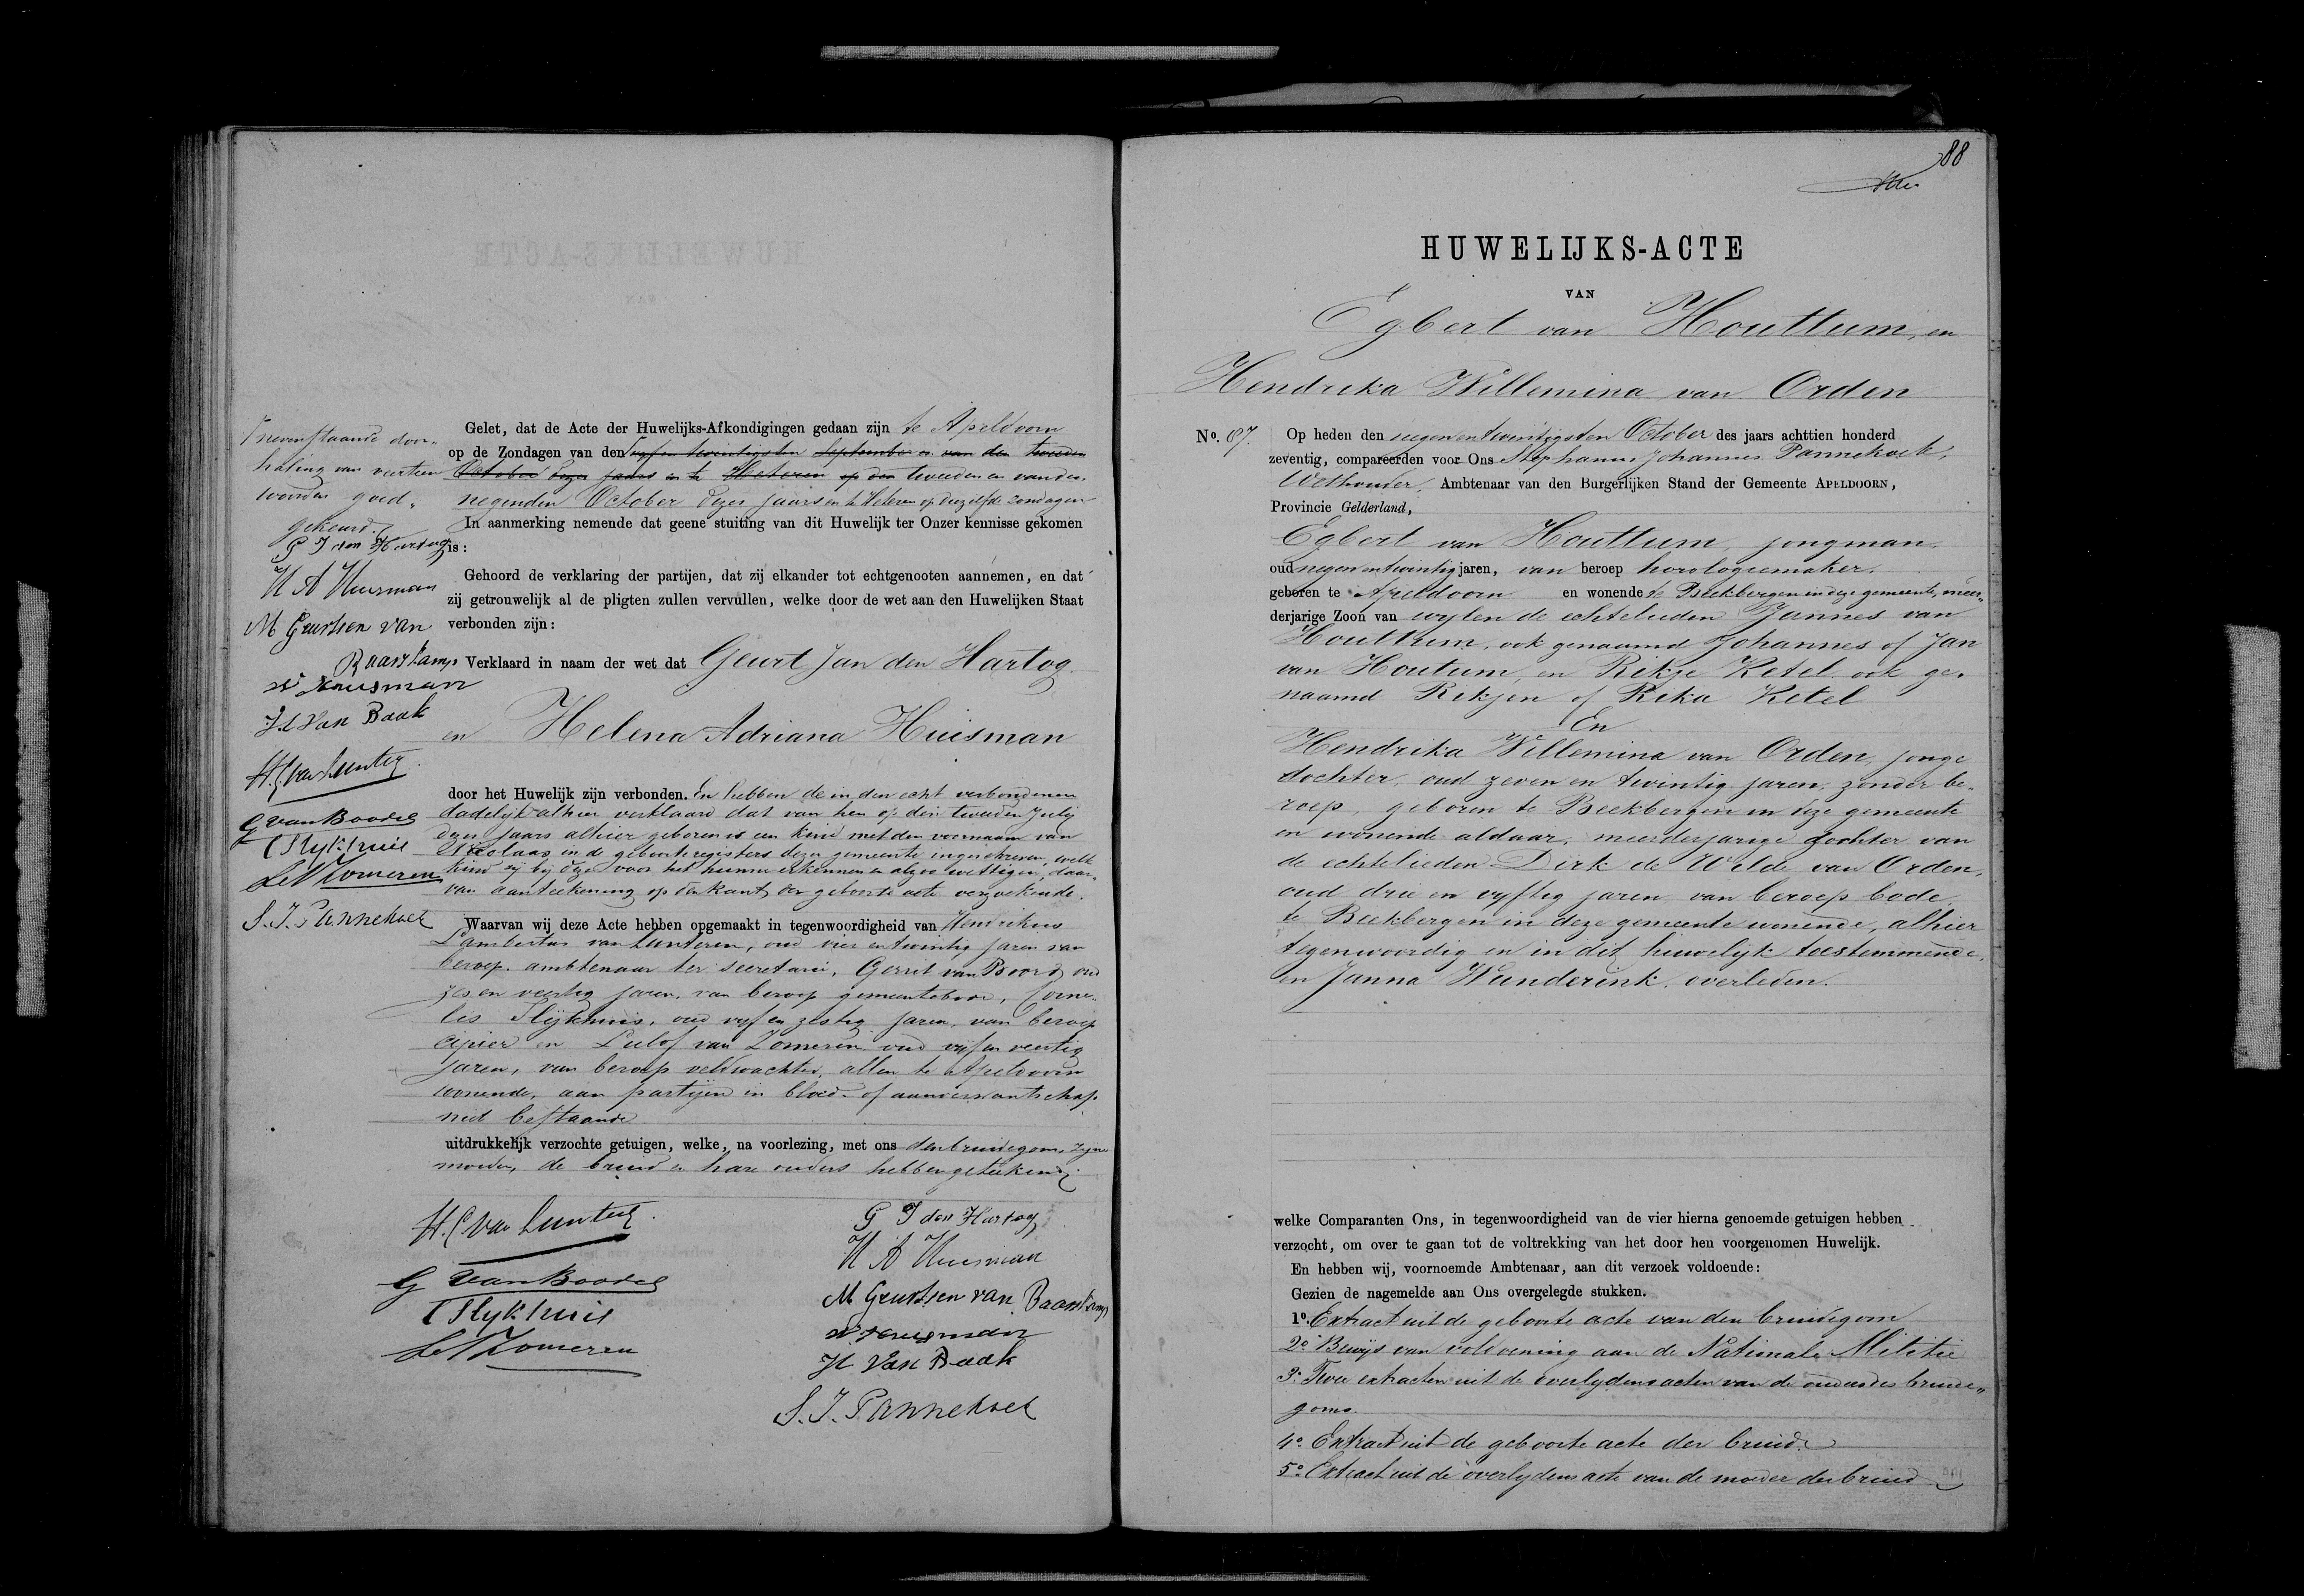 Gelet, dat de Acte der Huwelijks-Afkondigingen gedaan zijn te Apeldoorn
op de Zondagen van den vyfen twintigsten September en van den tweeden
October dezer jaars en te Heteren op den tweeden en van den
negenden October dezer jaars en te Heteren op dezelfde Zondagen
In aanmerking nemende dat geene stuiting van dit Huwelijk ter Onzer kennisse gekomen
is:
Gehoord de verklaring der partijen, dat zij elkander tot echtgenooten aannemen, en dat
zij getrouwelijk al de pligten zullen vervullen, welke door de wet aan den Huwelijken Staat
verbonden zijn:
Verklaard in naam der wet dat Geurt Jan den Hartog
en Helena Adriana Huisman
door het Huwelijk zijn verbonden. En hebben de in den echt verbondenen
dadelijk alhier verklaard dat van hen op den tweeden July
dezer jaars alhier geboren is een kind met den voornaam van
Nicolaas in de geboorteregisters dezer gemeente ingeschreven, welk
kind zij bij deze voor het hunne erkennen en alzoo wettigen, daar-
van aanteekening op den kant der geboorte acte verzoekende.
Waarvan wij deze Acte hebben opgemaakt in tegenwoordigheid van Hendrikus
Lambertus van Lunteren, oud vier en twintig jaren van
beroep ambtenaar ter secretarie, Gerrit van Boord, oud
zes en veertig jaren, van beroep gemeentebode, Corne-
lis Slijkhuis, oud vyf en zestig jaren, van beroep
cipier en Lulof van Zomeren oud vyf en veertig
jaren, van beroep veldwachter, allen te Apeldoorn
wonende, aan partijen in bloed- of aanverwantschap
niet bestaande
uitdrukkelijk verzochte getuigen, welke, na voorlezing, met ons den bruidegom, zyne
moeder, de bruid en hare ouders hebben geteekend
H.L van Lunteren
G van Boord
C Slijkhuis
L v Zomeren
G J den Hartog
H A Huisman
M Geurtsen van Baarskamp
N Huisman
H van Baak
S. J. Pannekoek
Nevenstaande door-
haling van veertien
woorden goed-
gekeurd.
G J den Hartog
H A Huisman
M Geurtsen van
Baarskamp
N Huisman
H van Baak
H.L van Lunteren
G van Boord
C Slijkhuis
L v Zomeren
S. J. Pannekoek
88
HUWELIJKS-ACTE
VAN
Egbert van Houttum, en
Hendrika Willemina van Orden
No. 87.
Op heden den negen en twintigsten October des jaars achttien honderd
zeventig, compareerden voor Ons Stephanus Johannes Pannekoek,
Wethouder, Ambtenaar van den Burgerlijken Stand der Gemeente APELDOORN,
Provincie Gelderland,
Egbert van Houttum, jongman,
oud negen en twintig jaren, van beroep horologiemaker,
geboren te Apeldoorn en wonende te Beekbergen in deze gemeente, meer-
derjarige Zoon van wylen de echtelieden Jannes van
Houttum, ook genaamd Johannes of Jan
van Houtum, en Rikje Ketel ook ge-
naamd Rikjen of Rika Ketel
En
Hendrika Willemina van Orden, jonge
dochter, oud zeven en twintig jaren, zonder be-
roep, geboren te Beekbergen in deze gemeente
en wonende aldaar, meerderjarige dochter van
de echtelieden Dirk de Wilde van Orden,
oud drie en vyftig jaren, van beroep bode,
te Beekbergen in deze gemeente wonende, alhier
tegenwoordig en in dit huwelyk toestemmende,
en Janna Wunderink, overleden.
welke Comparanten Ons, in tegenwoordigheid van de vier hierna genoemde getuigen hebben
verzocht, om over te gaan tot de voltrekking van het door hen voorgenomen Huwelijk.
En hebben wij, voornoemde Ambtenaar, aan dit verzoek voldoende:
Gezien de nagemelde aan Ons overgelegde stukken.
1o. Extract uit de geboorte acte van den bruidegom
2o Bewijs van voldoening aan de Nationale Militie
3o Twee extracten uit de overlydensacten van de ouders des bruide-
goms.
4o. Extract uit de geboorte acte der bruid.
5o. Extract uit de overlydens acte van de moeder der bruid